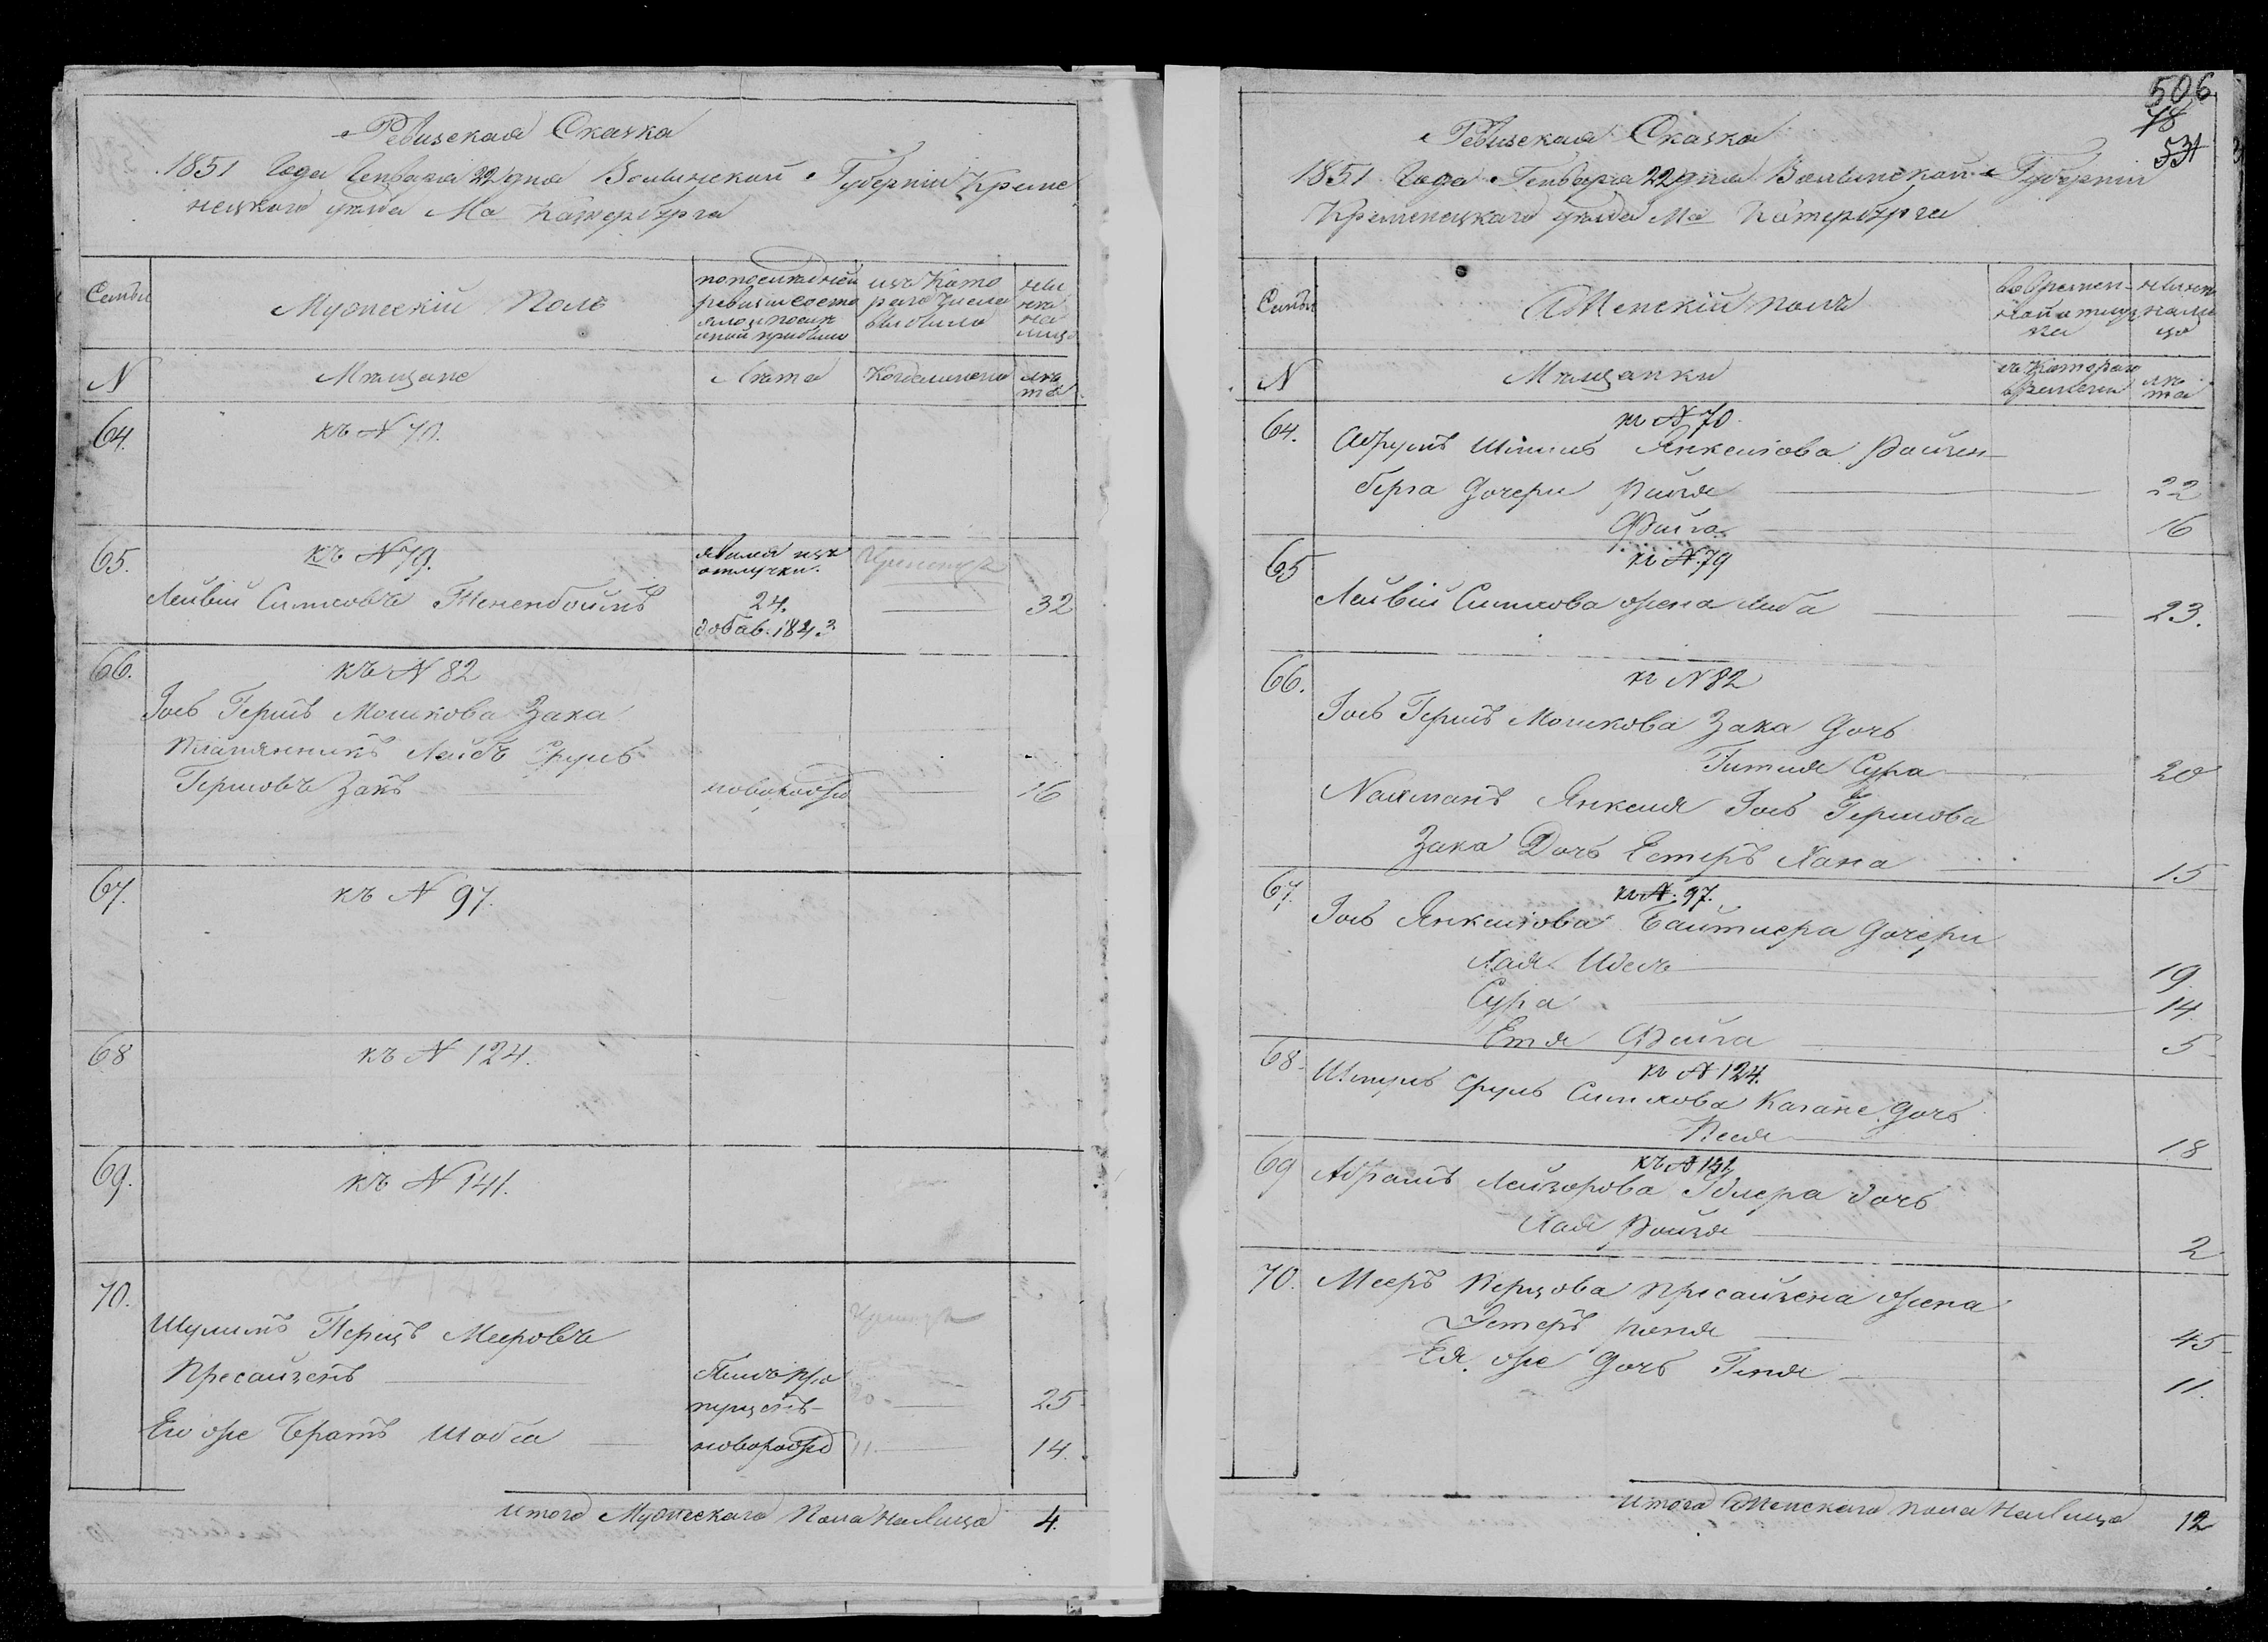 Ревизская Сказка
1851 Года Генваря 22 дня Волынской Губернии Креме
нецкаго уѣзда Ма Катербурга
Семьи
Мужескій Полъ
по последней ревизіи состо яло и после оной прибыло
изъ того числа выбыло
ныне на лицо
N
Мѣщане
Лѣта
Когда именно
лѣ та
64.
къ N 70.
65.
къ N 79.
явился изъ отлучки.
Лейвій Симховъ Тененбоймъ
24.
32
добав. 184.
66.
къ N 82
Іось Гершъ Мошкова Зака
племянникъ Лейбъ Сруль
Гершовъ Закъ
поворожд
16
67.
къ N 97.
68
къ N 124.
69.
къ N 141.
70.
Шулимъ Перецъ Мееровъ
Пресайзенъ
пущенъ
25
Его же братъ Шабса
новорожд
11.
14.
Итого Мужескаго Пола На лицо 4.
506
48
Ревизская Сказка
1851 Года Генваря 22 дня Волынской Губерніи
Кременецкаго уѣзда Ма Катербурга
Семьи
Женскій полъ
Во времен ной отлуч ке
ныне на ли цо
N
Мѣщанки
съ Котораго времени
лѣ та
64.
къ N 70.
Абрумъ Шмиль Янкелiова Ройзен
берга Дочери Рийзя
22
Файга
16
65
къ N. 79
Лейвій Симхова жена Либа
23.
66.
къ N 82
Іось Гершъ Мошкова Зака Дочь
Гитля Сура
20
Нахманъ Янкеля Іось Гершова
Зака Дочь Естеръ Хана
15
67.
къ N. 97.
Іось Янкелiова Байтлера Дочери
Хая Идесъ
19
Сура
14
Етя Файга
5
68.
къ N 124.
Шмуль Сруль Симхова Кагана Дочь
Песя
18
69
къ N 141
Абрамъ Лейзорова Едлера дочь
Хая Ройзя
2
70.
Мееръ Перцова Пресайзена жена
Естеръ
45
Ея же Дочь Геня
11.
Итого Женскаго пола На Лицо 12